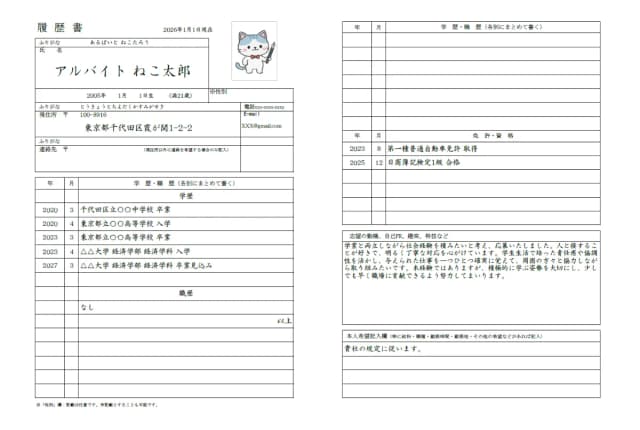 履歴書
2026年1月1日現在
ふりがな あるばいと ねこたろう
氏 名
アルバイト ねこ太郎
2005年 1月 1日生 (満21歳)
※性別
ふりがな とうきょうとちよだくかすみがせき
電話xxx-xxxx-xxxx
現住所 〒 100-8916
E-mail
東京都千代田区霞が関1-2-2
XXX@gmail.com
ふりがな
連絡先 〒 (現住所以外に連絡を希望する場合のみ記入)
年 月 学 歴・職 歴(各別にまとめて書く)
学歴
2020 3 千代田区立〇〇中学校 卒業
2020 4 東京都立〇〇高等学校 入学
2023 3 東京都立〇〇高等学校 卒業
2023 4 △△大学 経済学部 経済学科 入学
2027 3 △△大学 経済学部 経済学科 卒業見込み
職歴
なし
以上
※「性別」欄:記載は任意です。未記載とすることも可能です。
年 月 学 歴・職 歴(各別にまとめて書く)
年 月 免 許・資 格
2023 8 第一種普通自動車免許 取得
2025 12 日商簿記検定1級 合格
志望の動機、自己PR、趣味、特技など
学業と両立しながら社会経験を積みたいと考え、応募いたしました。人と接するこ
とが好きで、明るく丁寧な対応を心がけています。学生生活で培った責任感や協調
性を活かし、与えられた仕事を一つひとつ確実に覚えて、周囲の方々と協力しなが
ら取り組みたいです。未経験ではありますが、積極的に学ぶ姿勢を大切にし、少し
でも早く職場に貢献できるよう努力してまいります。
本人希望記入欄(特に給料・職種・勤務時間・勤務地・その他の希望などがあれば記入)
貴社の規定に従います。